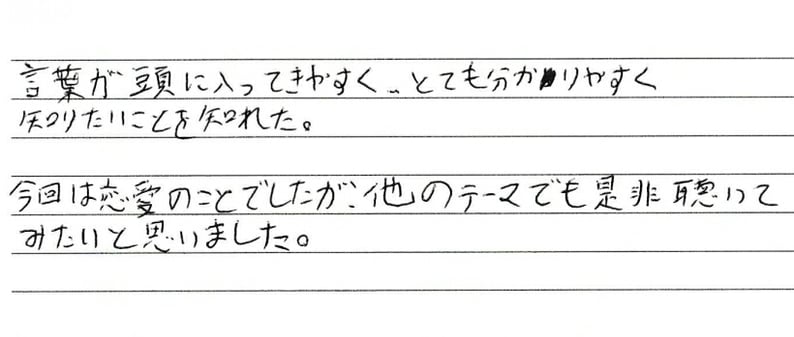 言葉が頭に入ってきやすく、とても分かりやすく
知りたいことを知れた。
今回は恋愛のことでしたが、他のテーマでも是非聴いて
みたいと思いました。